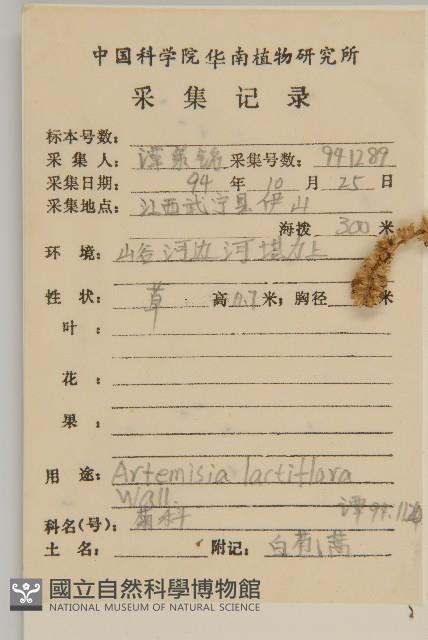 中国科学院华南植物研究所
采集记录
标本号数：
采集人：谭策铭 采集号数：941289
采集日期：94年10月25日
采集地点：江西武宁县伊山
海拨 300 米
环境：山谷河边河堪上
性状：草 高0.7米；胸径 米
叶：
花：
果：
用途：Artemisia lactiflora
Wall.
科名(号)：菊科 谭94.11
土名： 附记：白苞蒿
國立自然科學博物館
NATIONAL MUSEUM OF NATURAL SCIENCE